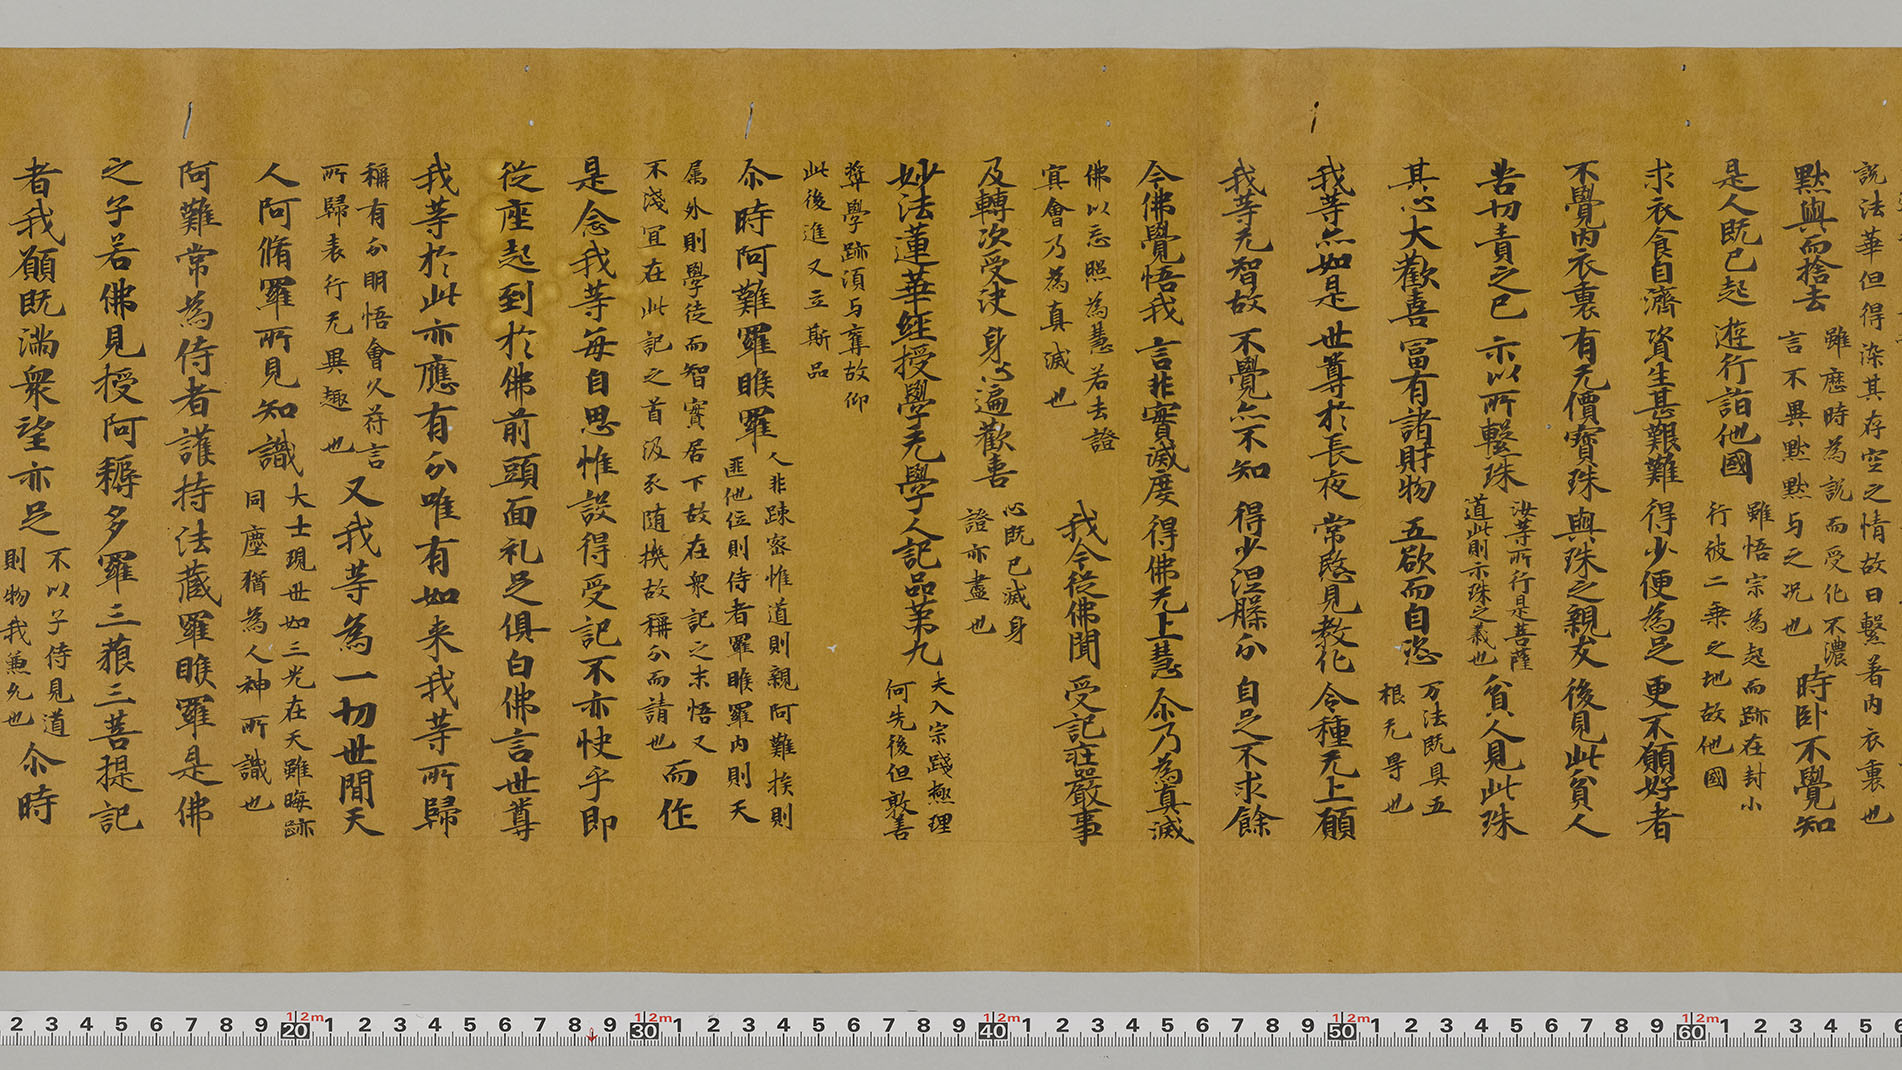 説法華但得染其存空之情故曰繫著内衣裏也
黙與而捨去
雖歴時為説而受化不濃
言不異黙黙与之況也
時卧不覺知
是人既已起 遊行詣他國
雖悟宗為起而跡在封小
行彼二乗之地故他國
求衣食自濟 資生甚艱難 得少便為足 更不願好者
不覺内衣裏 有无價寳珠 與珠之親友 後見此貧人
苦切責之已 示以所繫珠
汝等所行是菩薩
道此則示珠之義也
貧人見此珠
其心大歡喜 冨有諸財物 五欲而自恣
万法既具五
根无㝵也
我等亦如是 世尊於長夜 常愍見教化 令種无上願
我等无智故 不覺亦不知 得少涅槃分 自足不求餘
今佛覺悟我 言非實滅度 得佛无上慧 尒乃為真滅
佛以忘照為慧若去證
冥會乃為真滅也
我今從佛聞 受記莊嚴事
及轉次受决 身心遍歡喜
心既已滅身
證亦盡也
妙法蓮華經授學无學人記品第九
夫入宗踐極理
何先後但敦善
奬學跡湏与奪故仰
此後進又立斯品
尒時阿難羅睺羅
人非踈宻惟道則親阿難挨則
匪他位則侍者羅睺羅内則天
属外則學徒而智實居下故在衆記之末悟又
不淺冝在此記之首汲引随機故稱分而請也
而作
是念我等毎自思惟設得受記不亦快乎即
從座起到於佛前頭面礼足俱白佛言世尊
我等於此亦應有分唯有如来我等所歸
稱有分明悟會久符言
所歸表行无異趣也
又我等為一切世間天
人阿脩羅所見知識
大士現世如三光在天雖晦跡
同塵猶為人神所識也
阿難常為侍者護持法蔵羅睺羅是佛
之子若佛見授阿耨多羅三藐三菩提記
者我願既満衆望亦足
不以子侍見道
則物我兼允也
尒時
2 3 4 5 6 7 8 9 20 1 2 3 4 5 6 7 8 9 30 1 2 3 4 5 6 7 8 9 40 1 2 3 4 5 6 7 8 9 50 1 2 3 4 5 6 7 8 9 60 1 2 3 4 5 6
12m 12m 12m 12m 12m